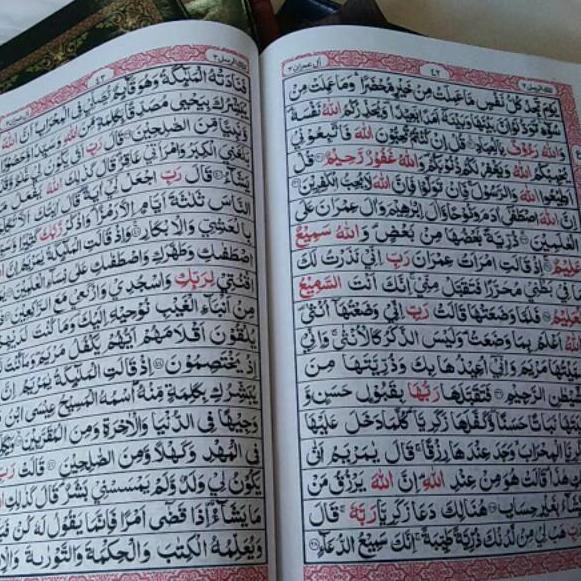 آل عمران ٣
٤٢
تلك الرسل ٣
يَوْمَ تَجِدُ كُلُّ نَفْسٍ مَّا عَمِلَتْ مِنْ خَيْرٍ مُّحْضَرًا ۛ وَمَا عَمِلَتْ مِنْ
سُوْٓءٍ ۛ تَوَدُّ لَوْ اَنَّ بَيْنَهَا وَبَيْنَهٗٓ اَمَدًۢا بَعِيْدًا ؕ وَيُحَذِّرُكُمُ اللّٰهُ نَفْسَهٗ
وَاللّٰهُ رَءُوْفٌۢ بِالْعِبَادِ قُلْ اِنْ كُنْتُمْ تُحِبُّوْنَ اللّٰهَ فَاتَّبِعُوْنِيْ
يُحْبِبْكُمُ اللّٰهُ وَيَغْفِرْ لَكُمْ ذُنُوْبَكُمْ ؕ وَاللّٰهُ غَفُوْرٌ رَّحِيْمٌ قُلْ
اَطِيْعُوا اللّٰهَ وَالرَّسُوْلَ ۚ فَاِنْ تَوَلَّوْا فَاِنَّ اللّٰهَ لَا يُحِبُّ الْكٰفِرِيْنَ
اِنَّ اللّٰهَ اصْطَفٰٓى اٰدَمَ وَنُوْحًا وَّاٰلَ اِبْرٰهِيْمَ وَاٰلَ عِمْرٰنَ عَلَى
الْعٰلَمِيْنَ ذُرِّيَّةًۢ بَعْضُهَا مِنْۢ بَعْضٍ ؕ وَاللّٰهُ سَمِيْعٌ
عَلِيْمٌ اِذْ قَالَتِ امْرَاَتُ عِمْرٰنَ رَبِّ اِنِّيْ نَذَرْتُ لَكَ
مَا فِيْ بَطْنِيْ مُحَرَّرًا فَتَقَبَّلْ مِنِّيْ ۚ اِنَّكَ اَنْتَ السَّمِيْعُ
الْعَلِيْمُ فَلَمَّا وَضَعَتْهَا قَالَتْ رَبِّ اِنِّيْ وَضَعْتُهَآ اُنْثٰى
وَاللّٰهُ اَعْلَمُ بِمَا وَضَعَتْ ؕ وَلَيْسَ الذَّكَرُ كَالْاُنْثٰى ۚ وَاِنِّيْ
سَمَّيْتُهَا مَرْيَمَ وَاِنِّيْٓ اُعِيْذُهَا بِكَ وَذُرِّيَّتَهَا مِنَ
الشَّيْطٰنِ الرَّجِيْمِ فَتَقَبَّلَهَا رَبُّهَا بِقَبُوْلٍ حَسَنٍ وَّ
اَنْۢبَتَهَا نَبَاتًا حَسَنًا ۙ وَّكَفَّلَهَا زَكَرِيَّا ۚ كُلَّمَا دَخَلَ عَلَيْهَا
زَكَرِيَّا الْمِحْرَابَ ۙ وَجَدَ عِنْدَهَا رِزْقًا ۚ قَالَ يٰمَرْيَمُ اَنّٰى
لَكِ هٰذَا ؕ قَالَتْ هُوَ مِنْ عِنْدِ اللّٰهِ ؕ اِنَّ اللّٰهَ يَرْزُقُ مَنْ
يَّشَآءُ بِغَيْرِ حِسَابٍ هُنَالِكَ دَعَا زَكَرِيَّا رَبَّهٗ ۚ قَالَ
رَبِّ هَبْ لِيْ مِنْ لَّدُنْكَ ذُرِّيَّةً طَيِّبَةً ۚ اِنَّكَ سَمِيْعُ الدُّعَآءِ
تلك الرسل ٣
٤٣
فَنَادَتْهُ الْمَلٰٓئِكَةُ وَهُوَ قَآئِمٌ يُّصَلِّيْ فِي الْمِحْرَابِ ۙ اَنَّ اللّٰهَ
يُبَشِّرُكَ بِيَحْيٰى مُصَدِّقًۢا بِكَلِمَةٍ مِّنَ اللّٰهِ وَسَيِّدًا وَّحَصُوْرًا
وَّنَبِيًّا مِّنَ الصّٰلِحِيْنَ قَالَ رَبِّ اَنّٰى يَكُوْنُ لِيْ غُلٰمٌ وَّقَدْ
بَلَغَنِيَ الْكِبَرُ وَامْرَاَتِيْ عَاقِرٌ ؕ قَالَ كَذٰلِكَ اللّٰهُ يَفْعَلُ مَا
يَشَآءُ قَالَ رَبِّ اجْعَلْ لِّيْٓ اٰيَةً ؕ قَالَ اٰيَتُكَ اَلَّا تُكَلِّمَ
النَّاسَ ثَلٰثَةَ اَيَّامٍ اِلَّا رَمْزًا ؕ وَاذْكُرْ رَّبَّكَ كَثِيْرًا وَّسَبِّحْ
بِالْعَشِيِّ وَالْاِبْكَارِ وَاِذْ قَالَتِ الْمَلٰٓئِكَةُ يٰمَرْيَمُ اِنَّ اللّٰهَ
اصْطَفٰىكِ وَطَهَّرَكِ وَاصْطَفٰىكِ عَلٰى نِسَآءِ الْعٰلَمِيْنَ يٰمَرْيَمُ
اقْنُتِيْ لِرَبِّكِ وَاسْجُدِيْ وَارْكَعِيْ مَعَ الرّٰكِعِيْنَ ذٰلِكَ
مِنْ اَنْۢبَآءِ الْغَيْبِ نُوْحِيْهِ اِلَيْكَ ؕ وَمَا كُنْتَ لَدَيْهِمْ اِذْ
يُلْقُوْنَ اَقْلَامَهُمْ اَيُّهُمْ يَكْفُلُ مَرْيَمَ ۪ وَمَا كُنْتَ لَدَيْهِمْ
اِذْ يَخْتَصِمُوْنَ اِذْ قَالَتِ الْمَلٰٓئِكَةُ يٰمَرْيَمُ اِنَّ اللّٰهَ
يُبَشِّرُكِ بِكَلِمَةٍ مِّنْهُ ۖ اسْمُهُ الْمَسِيْحُ عِيْسَى ابْنُ مَرْيَمَ
وَجِيْهًا فِي الدُّنْيَا وَالْاٰخِرَةِ وَمِنَ الْمُقَرَّبِيْنَ وَيُكَلِّمُ النَّاسَ
فِي الْمَهْدِ وَكَهْلًا وَّمِنَ الصّٰلِحِيْنَ قَالَتْ رَبِّ اَنّٰى
يَكُوْنُ لِيْ وَلَدٌ وَّلَمْ يَمْسَسْنِيْ بَشَرٌ ؕ قَالَ كَذٰلِكِ اللّٰهُ يَخْلُقُ
مَا يَشَآءُ ؕ اِذَا قَضٰٓى اَمْرًا فَاِنَّمَا يَقُوْلُ لَهٗ كُنْ فَيَكُوْنُ
وَيُعَلِّمُهُ الْكِتٰبَ وَالْحِكْمَةَ وَالتَّوْرٰىةَ وَالْاِنْجِيْلَ